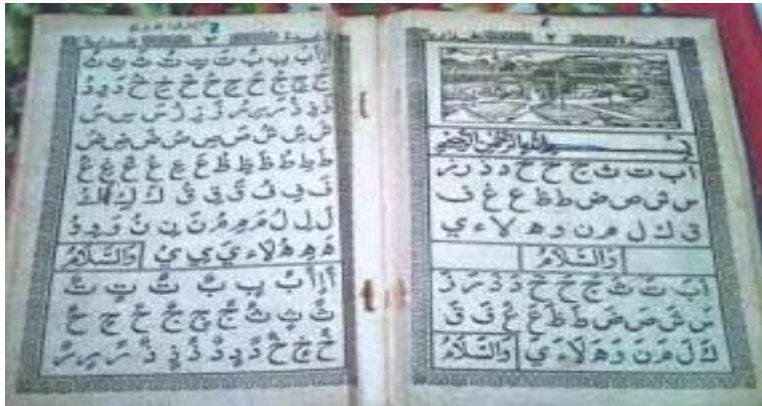 قاعدة ٢ بغدادية
بسم الله الرحمن الرحيم
ا ب ت ث ج ح خ د ذ ر ز
س ش ص ض ط ظ ع غ ف
ق ك ل م ن و ه لا ء ي
وَالسَّلَامُ
اَ بَ تَ ثَ جَ حَ خَ دَ ذَ رَ زَ
سَ شَ صَ ضَ طَ ظَ عَ غَ فَ قَ
كَ لَ مَ نَ وَ هَ لَا ءَ يَ وَالسَّلَامُ
قاعدة ٣ بغدادية
اَ اِ اُ بَ بِ بُ تَ تِ تُ ثَ ثِ ثُ
جَ جِ جُ حَ حِ حُ خَ خِ خُ دَ دِ دُ
ذَ ذِ ذُ رَ رِ رُ زَ زِ زُ سَ سِ سُ
شَ شِ شُ صَ صِ صُ ضَ ضِ ضُ
طَ طِ طُ ظَ ظِ ظُ عَ عِ عُ غَ غِ غُ
فَ فِ فُ قَ قِ قُ كَ كِ كُ
لَ لِ لُ مَ مِ مُ نَ نِ نُ وَ وِ وُ
هَ هِ هُ لَا ءَ يَ يِ يُ وَالسَّلَامُ
اً اٍ اٌ بً بٍ بٌ تً تٍ تٌ
ثً ثٍ ثٌ جً جٍ جٌ حً حٍ حٌ
خً خٍ خٌ دً دٍ دٌ ذً ذٍ ذٌ رً رٍ رٌ